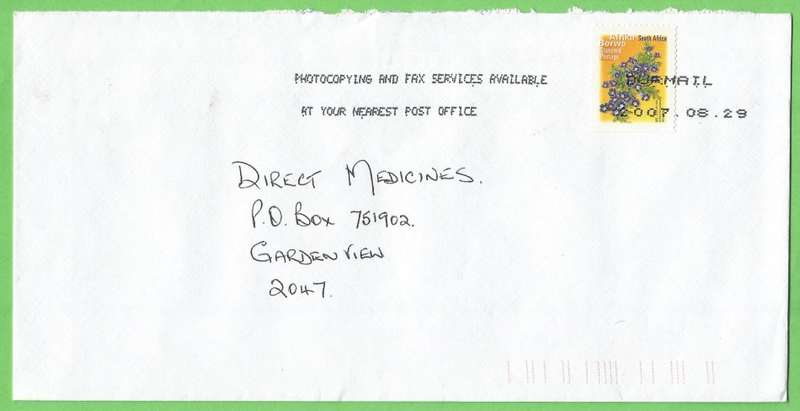 Afrika
Borwa
South Africa
Standard
Postage
PHOTOCOPYING AND FAX SERVICES AVAILABLE
AT YOUR NEAREST POST OFFICE
DURMAIL
2007.08.29
DIRECT MEDICINES.
P.O. Box 751902.
GARDENVIEW
2047.